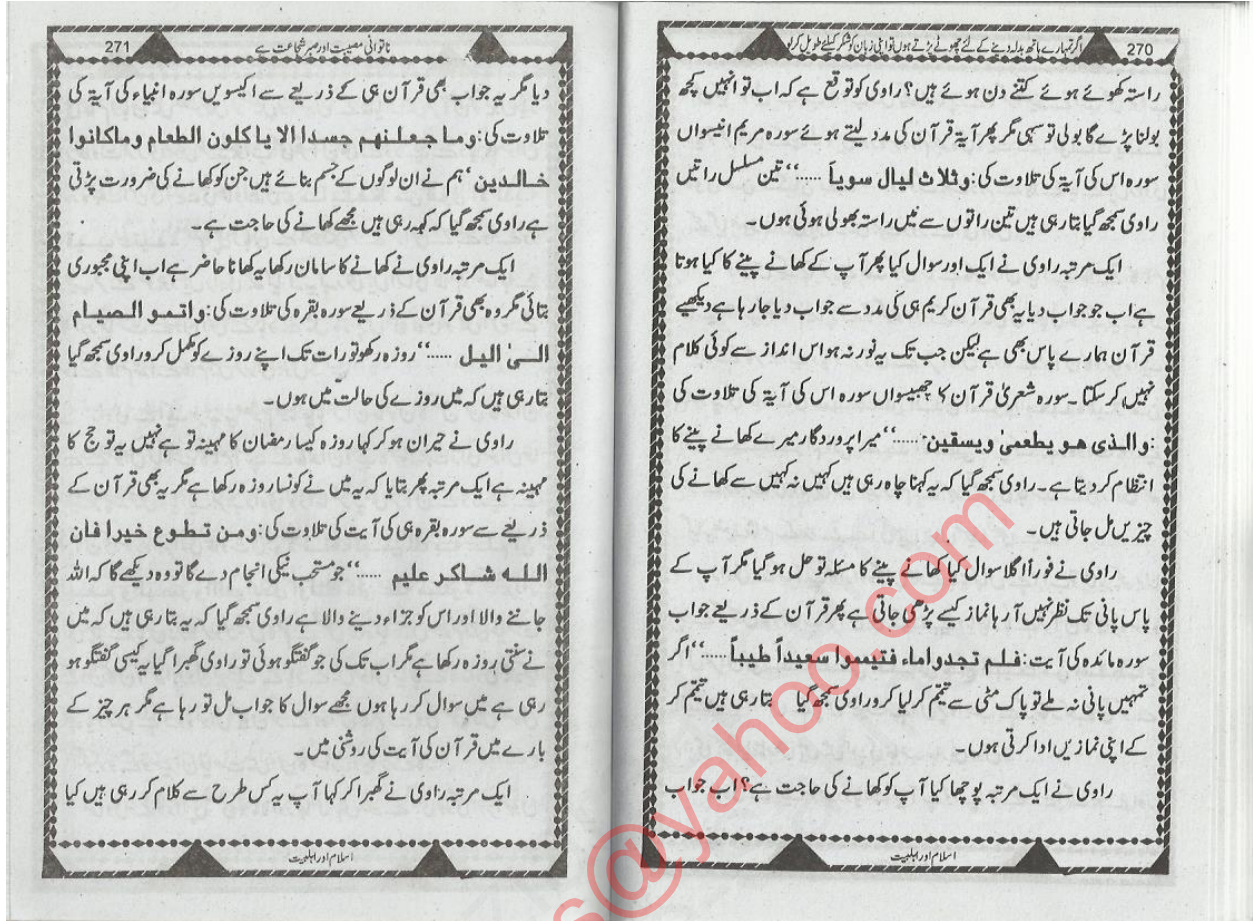 270
اگر تمہارے ہاتھ بدلہ دینے کے لئے چھوٹے پڑتے ہوں تو اپنی زبان کو شکر کیلئے طویل کر لو
راستہ کھوئے ہوئے کتنے دن ہوئے ہیں؟ راوی کو توقع ہے کہ اب تو انہیں کچھ
بولنا پڑے گا بولی تو سہی مگر پھر آیۃ قرآن کی مدد لیتے ہوئے سورہ مریم انیسواں
سورہ اس کی آیۃ کی تلاوت کی: وثلاث لیال سویاً .....‘‘ تین مسلسل راتیں
راوی سمجھ گیا بتا رہی ہیں تین راتوں سے میں راستہ بھولی ہوئی ہوں۔
ایک مرتبہ راوی نے ایک اور سوال کیا پھر آپ کے کھانے پینے کا کیا ہوتا
ہے اب جو جواب دیا یہ بھی قرآن کریم ہی کی مدد سے جواب دیا جا رہا ہے دیکھیے
قرآن ہمارے پاس بھی ہے لیکن جب تک یہ نور نہ ہو اس انداز سے کوئی کلام
نہیں کر سکتا۔ سورہ شعریٰ قرآن کا چھبیسواں سورہ اس کی آیۃ کی تلاوت کی
:والذی ھو یطعمیٰ ویسقین .....‘‘ میرا پروردگار میرے کھانے پینے کا
انتظام کر دیتا ہے۔ راوی سمجھ گیا کہ یہ کہنا چاہ رہی ہیں کہیں نہ کہیں سے کھانے کی
چیزیں مل جاتی ہیں۔
راوی نے فوراً اگلا سوال کیا کھانے پینے کا مسئلہ تو حل ہو گیا مگر آپ کے
پاس پانی تک نظر نہیں آ رہا نماز کیسے پڑھی جاتی ہے پھر قرآن کے ذریعے جواب
سورہ مائدہ کی آیت: فلم تجدواماء فتیمموا سعیداً طیباً .....‘‘ اگر
تمہیں پانی نہ ملے تو پاک مٹی سے تیمّم کر لیا کرو راوی سمجھ گیا بتا رہی ہیں تیمّم کر
کے اپنی نمازیں ادا کرتی ہوں۔
راوی نے ایک مرتبہ پوچھا کیا آپ کو کھانے کی حاجت ہے؟ اب جواب
اسلام اور اہلبیت
271
ناتوانی مصیبت اور صبر شجاعت ہے
دیا مگر یہ جواب بھی قرآن ہی کے ذریعے سے اکیسویں سورہ انبیاء کی آیۃ کی
تلاوت کی: وما جعلنھم جسدا الا یاکلون الطعام وماکانوا
خالدین‘ ہم نے ان لوگوں کے جسم بنائے ہیں جن کو کھانے کی ضرورت پڑتی
ہے راوی سمجھ گیا کہ کہہ رہی ہیں مجھے کھانے کی حاجت ہے۔
ایک مرتبہ راوی نے کھانے کا سامان رکھا یہ کھانا حاضر ہے اب اپنی مجبوری
بتائی مگر وہ بھی قرآن کے ذریعے سورہ بقرہ کی تلاوت کی: واتمو الصیام
الیٰ الیل .....‘‘ روزہ رکھو تو رات تک اپنے روزے کو مکمل کرو راوی سمجھ گیا
بتا رہی ہیں کہ میں روزے کی حالت میں ہوں۔
راوی نے حیران ہو کر کہا روزہ کیسا رمضان کا مہینہ تو ہے نہیں یہ تو حج کا
مہینہ ہے ایک مرتبہ پھر بتایا کہ یہ میں نے کونسا روزہ رکھا ہے مگر یہ بھی قرآن کے
ذریعے سے سورہ بقرہ ہی کی آیت کی تلاوت کی: ومن تطوع خیرا فان
اللہ شاکر علیم .....‘‘ جو مستحب نیکی انجام دے گا تو وہ دیکھے گا کہ اللہ
جاننے والا اور اس کو جزاء دینے والا ہے راوی سمجھ گیا کہ یہ بتا رہی ہیں کہ میں
نے سنتی روزہ رکھا ہے مگر اب تک کی جو گفتگو ہوئی تو راوی گھبرا گیا یہ کیسی گفتگو ہو
رہی ہے میں سوال کر رہا ہوں مجھے سوال کا جواب مل تو رہا ہے مگر ہر چیز کے
بارے میں قرآن کی آیت کی روشنی میں۔
ایک مرتبہ راوی نے گھبرا کر کہا آپ یہ کس طرح سے کلام کر رہی ہیں کیا
اسلام اور اہلبیت
s@yahoo.com